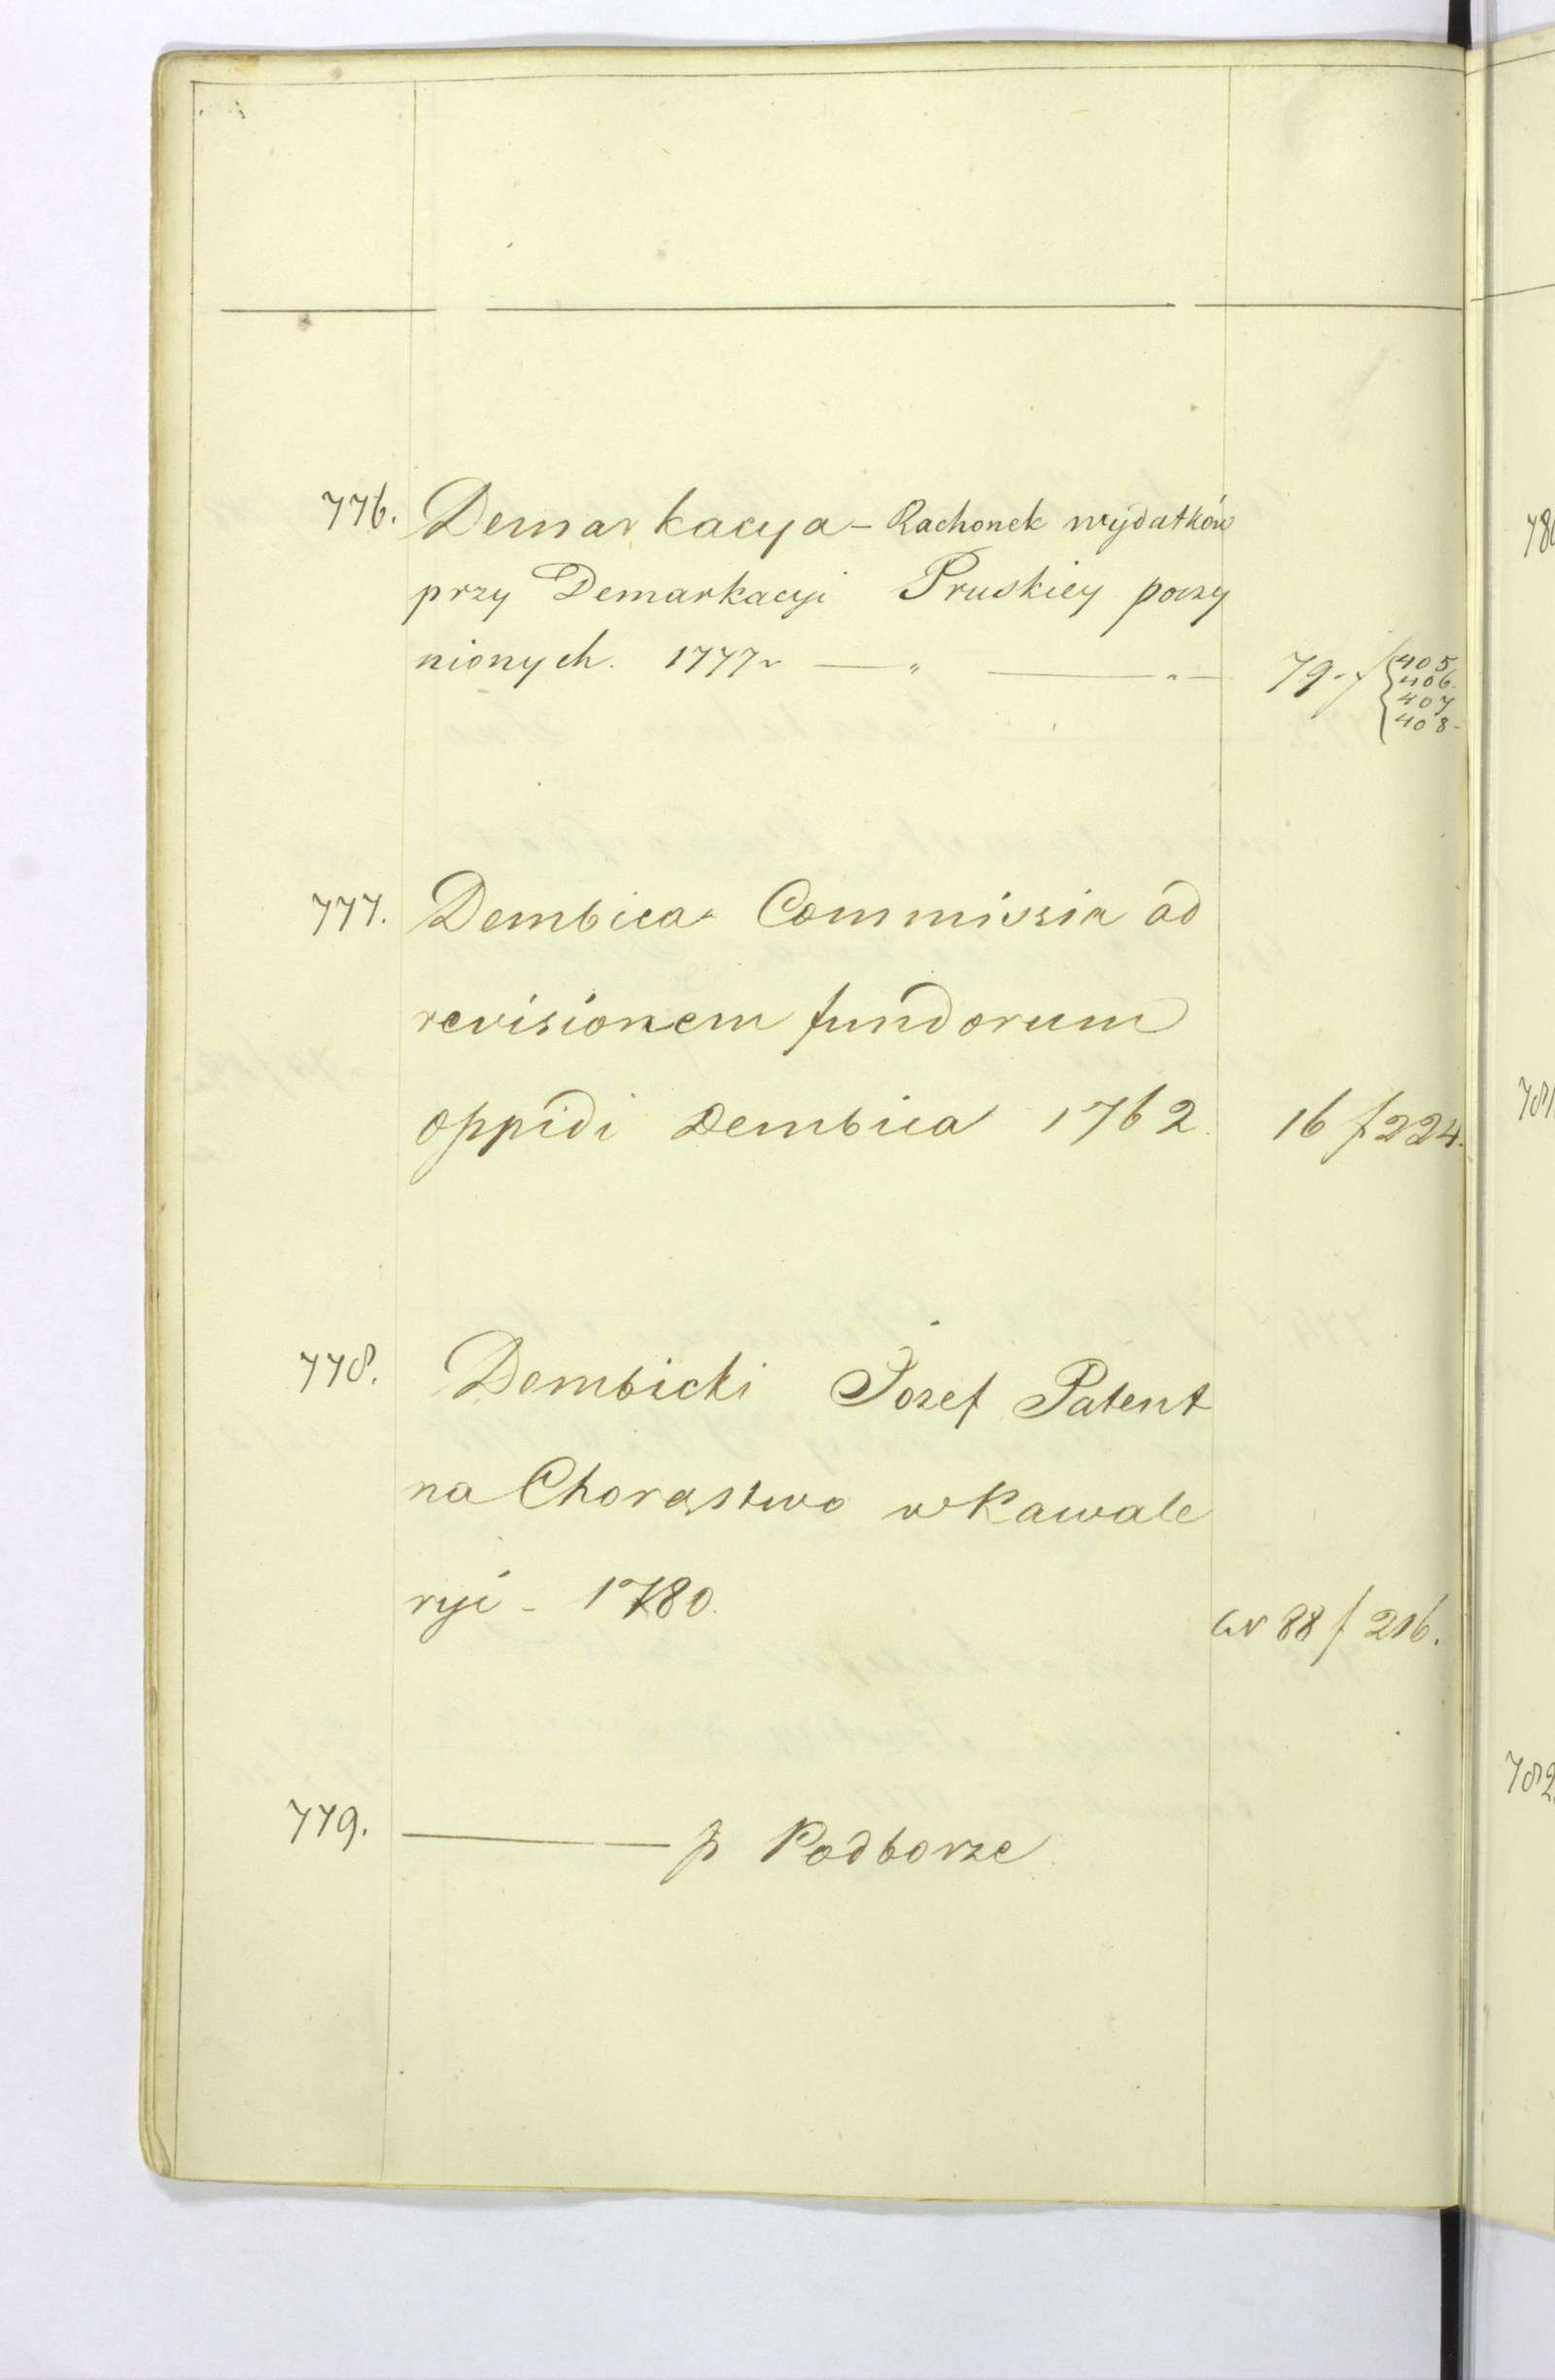 776. Demarkacya – Rachonek wydatków
przy Demarkacyi Pruskiey poczy
nionych. 1777 r — „ — „ — 79. f { 405
406.
407
408 -
777. Dembica - Commissia ad
revisionem fundorum
oppidi Dembica 1762. 16 f 224.
778. Dembicki Jozef Patent
na Chorąstwo w Kawale
ryi - 1780. W 88 f 216.
779. ——— p Podborze
781
782